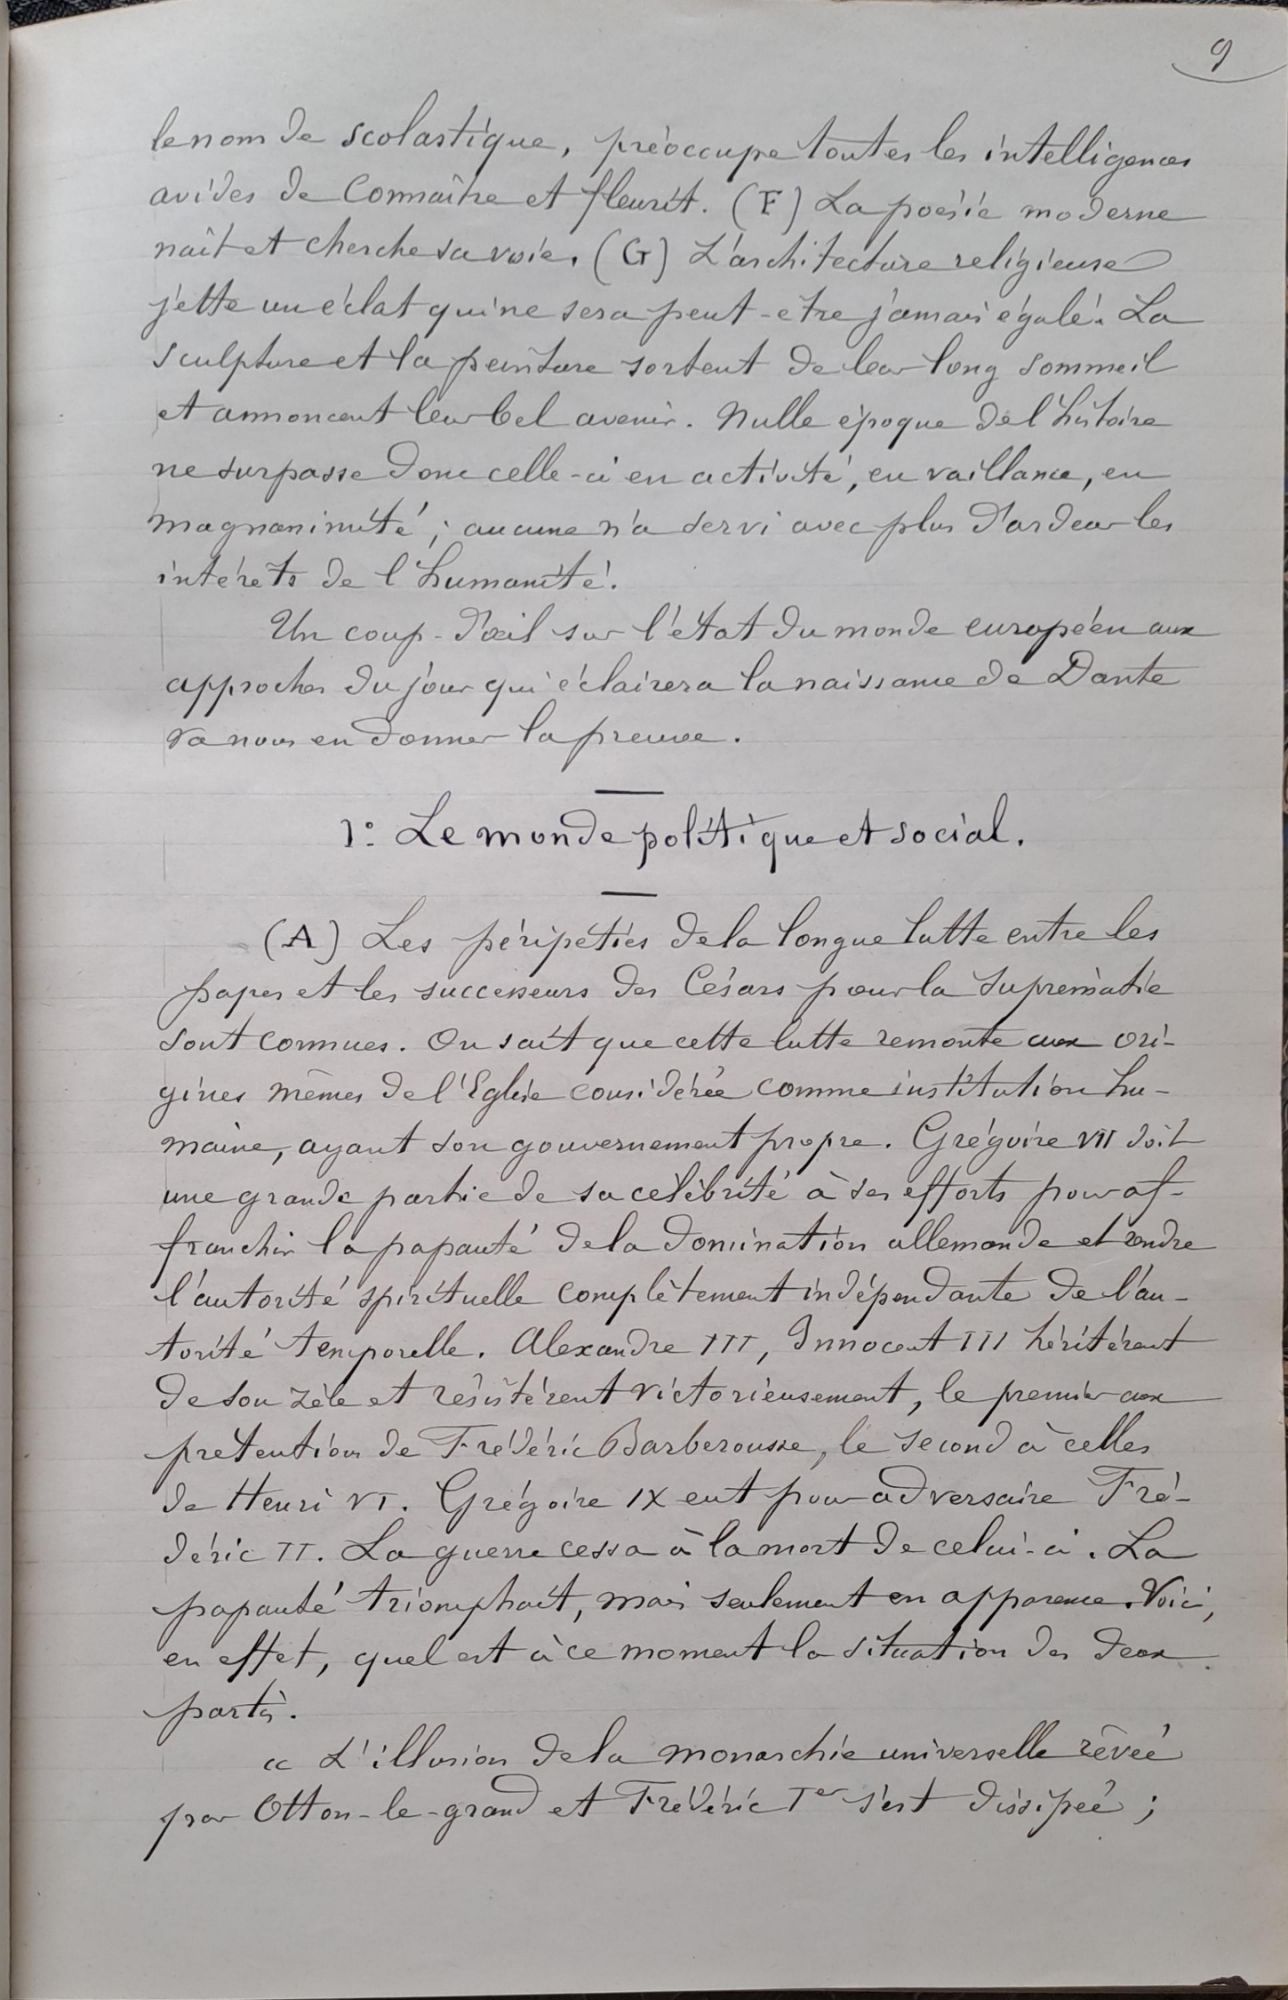 9
le nom de scolastique, préoccupe toutes les intelligences
avides de connaître et fleurit. (F) La poésie moderne
naît et cherche sa voie. (G) L'architecture religieuse
jette un éclat qui ne sera peut-etre jamais égalé. La
sculpture et la peinture sortent de leur long sommeil
et annoncent leur bel avenir. Nulle époque de l'histoire
ne surpasse donc celle-ci en activité, en vaillance, en
magnanimité ; aucune n'a servi avec plus d'ardeur les
intérêts de l'humanité.
Un coup-d'œil sur l'état du monde européen aux
approches du jour qui éclairera la naissance de Dante
va nous en donner la preuve.
1º Le monde politique et social.
(A) Les péripéties de la longue lutte entre les
papes et les successeurs des Césars pour la suprématie
sont connues. On sait que cette lutte remonte aux ori-
gines mêmes de l'Eglise considérée comme institution hu-
maine, ayant son gouvernement propre. Grégoire VII doit
une grande partie de sa célébrité à ses efforts pour af-
franchir la papauté de la domination allemande et rendre
l'autorité spirituelle complètement indépendante de l'au-
torité temporelle. Alexandre III, Innocent III héritèrent
de son zèle et résistèrent victorieusement, le premier aux
prétentions de Frédéric Barberousse, le second à celles
de Henri VI. Grégoire IX eut pour adversaire Fré-
déric II. La guerre cessa à la mort de celui-ci. La
papauté triomphait, mais seulement en apparence. Voici,
en effet, quel est à ce moment la situation des deux
partis.
« L'illusion de la monarchie universelle rêvée
par Otton-le-grand et Frédéric Ier s'est dissipée ;